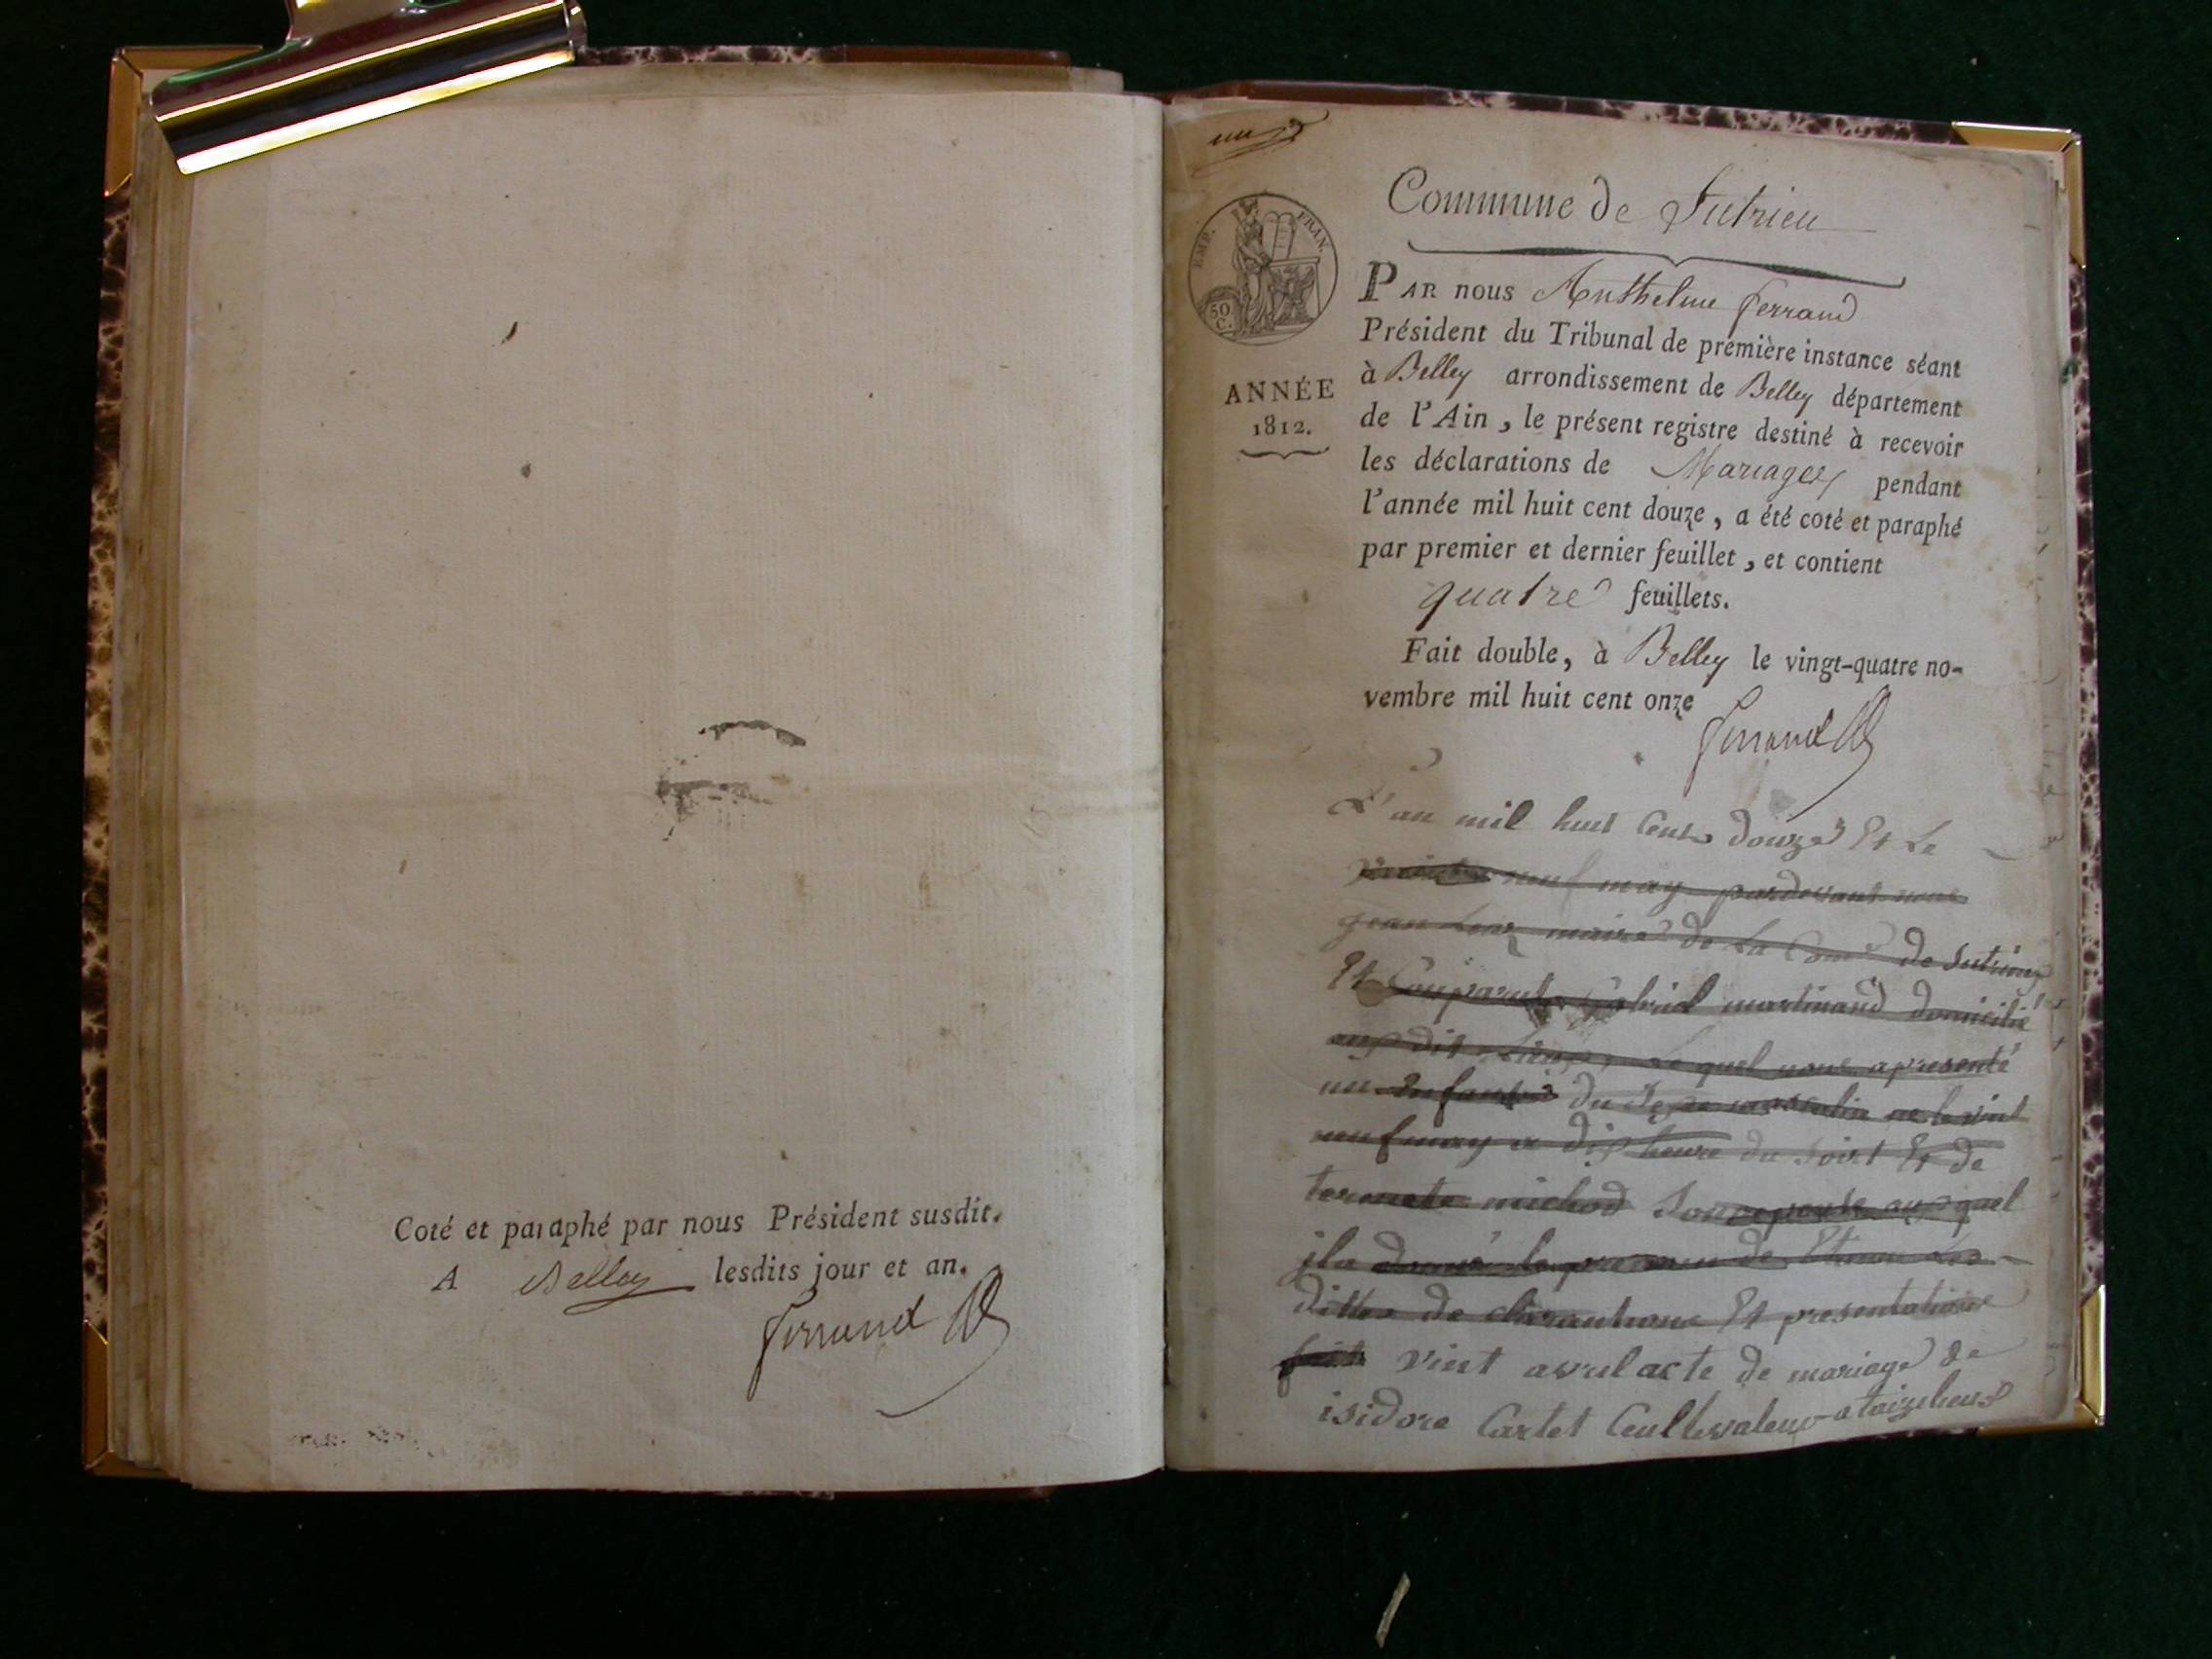 Coté et paraphé par nous Président susdit.
A Belley lesdits jour et an.
Ferrand
un
Commune de Sutrieu
EMP. FRAN.
50
C.
ANNÉE
1812.
PAR nous Anthelme ferrand
Président du Tribunal de première instance séant
à Belley arrondissement de Belley département
de l'Ain, le présent registre destiné à recevoir
les déclarations de Mariages pendant
l'année mil huit cent douze, a été coté et paraphé
par premier et dernier feuillet, et contient
quatre feuillets.
Fait double, à Belley le vingt-quatre no-
vembre mil huit cent onze
Ferrand
L'an mil huit Cent douze Et Le
neuf may pardevant nous
jean maire de La Com de Sutrieux
Et Comparut Gabriel martinand domicilié
aux dit Lieux, Le quel nous apresenté
un Enfant du Sexe masculin ne le vint
neuf may a dix heure du soirt Et de
michod Son epouse aux quel
jla donné le prenom de Les
dittes de clarautions Et presentations
fait vint avrul acte de mariage de
isidore Cartet Ceultivateur a